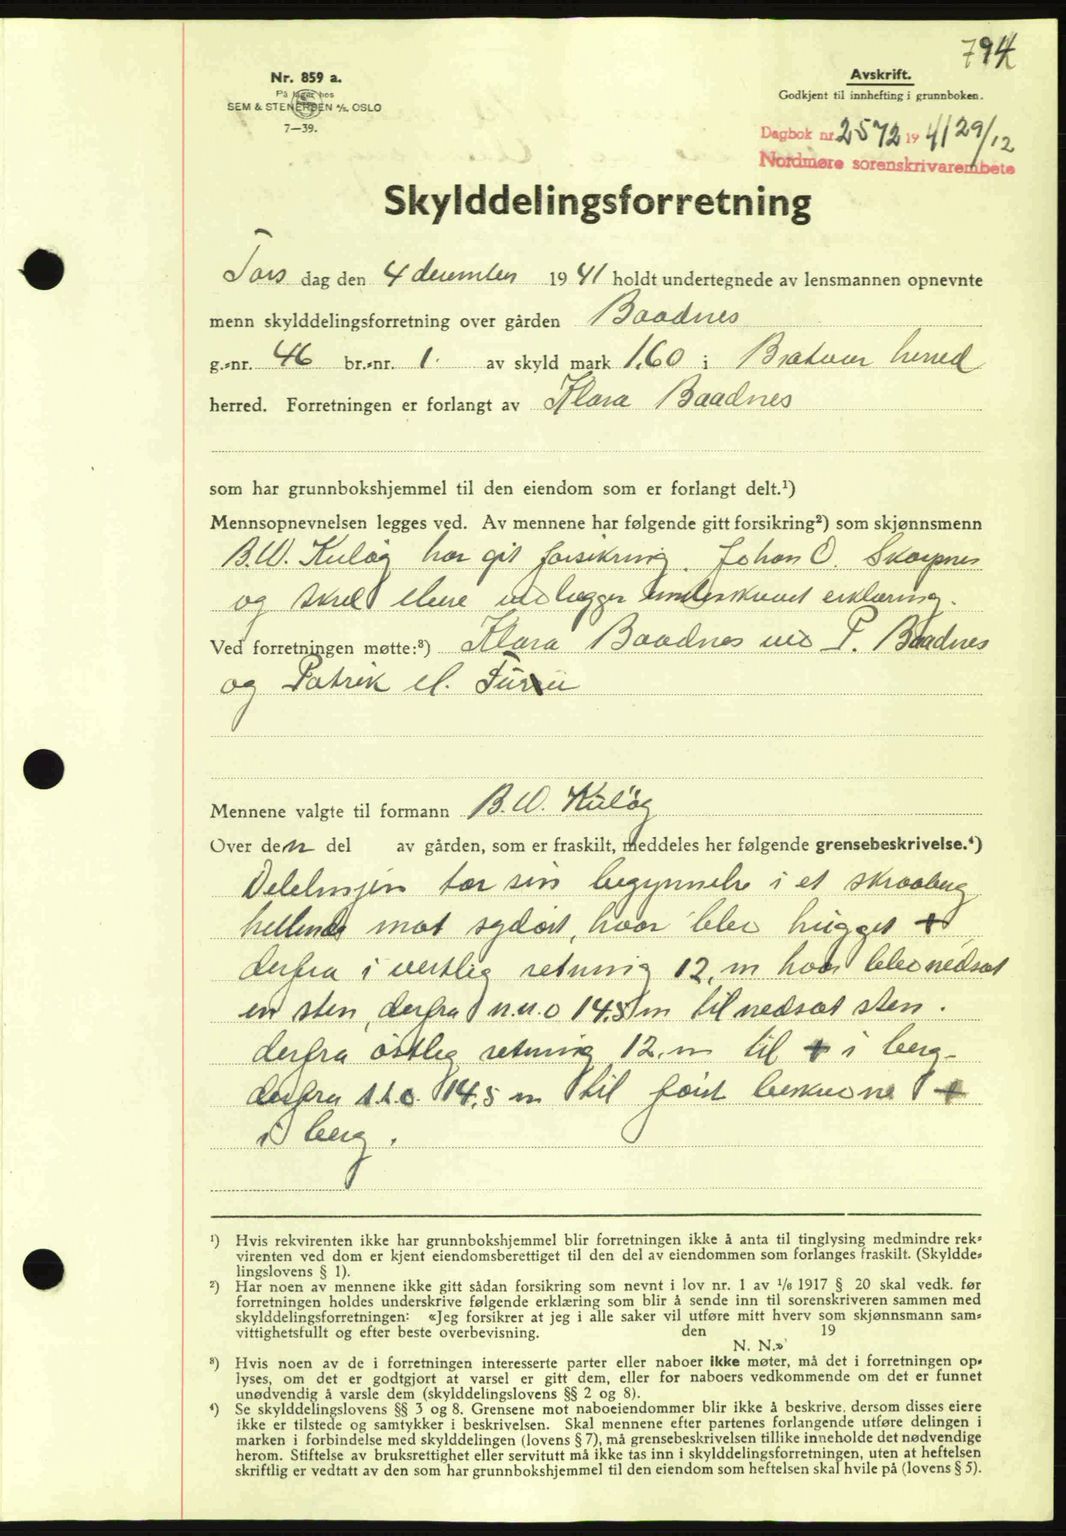 794
Nr. 859 a.
På lager hos
SEM & STENERSEN A/S, OSLO
7—39.
Avskrift.
Godkjent til innhefting i grunnboken.
Dagbok nr. 2572 19 41 29/12
Nordmøre sorenskrivarembete
Skylddelingsforretning
Tors dag den 4 desember 1941 holdt undertegnede av lensmannen opnevnte
menn skylddelingsforretning over gården Baadnes
g.-nr. 46 br.-nr. 1. av skyld mark 1.60 i Bratvær herred
herred. Forretningen er forlangt av Klara Baadnes
som har grunnbokshjemmel til den eiendom som er forlangt delt.¹)
Mennsopnevnelsen legges ved. Av mennene har følgende gitt forsikring²) som skjønnsmenn
B.W. Kuløy har git forsikring. Johan O. Skarpnes
og underskrevet erklæring.
Ved forretningen møtte:³) Klara Baadnes ved P. Baadnes
og Patrik
Mennene valgte til formann B.W. Kuløy
Over den del av gården, som er fraskilt, meddeles her følgende grensebeskrivelse.⁴)
Delelinjen tar sin begynnelse i et skraaberg
hellende mot sydøst, hvor blev hugget +
derfra i vestlig retning 12, m hvor blev nedsat
en sten, derfra n.n.o 14.5 m til nedsat sten.
derfra østlig retning 12. m til + i berg-
derfra s.s.o. 14,5 m til først beskrevne +
i berg.
¹) Hvis rekvirenten ikke har grunnbokshjemmel blir forretningen ikke å anta til tinglysing medmindre rek-
virenten ved dom er kjent eiendomsberettiget til den del av eiendommen som forlanges fraskilt. (Skyldde-
lingslovens § 1).
²) Har noen av mennene ikke gitt sådan forsikring som nevnt i lov nr. 1 av 1/6 1917 § 20 skal vedk. før
forretningen holdes underskrive følgende erklæring som blir å sende inn til sorenskriveren sammen med
skylddelingsforretningen: «Jeg forsikrer at jeg i alle saker vil utføre mitt hverv som skjønnsmann sam-
vittighetsfullt og efter beste overbevisning. den 19
N. N.»
³) Hvis noen av de i forretningen interesserte parter eller naboer ikke møter, må det i forretningen op-
lyses, om det er godtgjort at varsel er gitt dem, eller for naboers vedkommende om det er funnet
unødvendig å varsle dem (skylddelingslovens §§ 2 og 8).
⁴) Se skylddelingslovens §§ 3 og 8. Grensene mot naboeiendommer blir ikke å beskrive, dersom disses eiere
ikke er tilstede og samtykker i beskrivelsen. Skal mennene efter partenes forlangende utføre delingen i
marken i forbindelse med skylddelingen (lovens § 7), må grensebeskrivelsen tillike inneholde det nødvendige
herom. Stiftelse av bruksrettighet eller servitutt må ikke tas inn i skylddelingsforretningen, uten at heftelsen
skriftlig er vedtatt av den som har grunnbokshjemmel til den eiendom som heftelsen skal hvile på (lovens § 5).